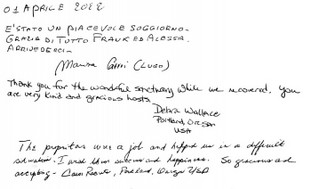 01 APRILE 2022
E' STATO UN PIACEVOLE SOGGIORNO.
GRAZIA DI TUTTO FRANK ED ALESSA.
ARRIVEDERCI.
(LUGO)
Thank you for the wonderful sanctuary while we recovered. You
are very kind and gracious hosts.
Debra Wallace
Portland Oregon
USA
The was a job and helped us in a difficult
situation. I wish and happiness. So gracious and
accepting - Portland, Oregon USA